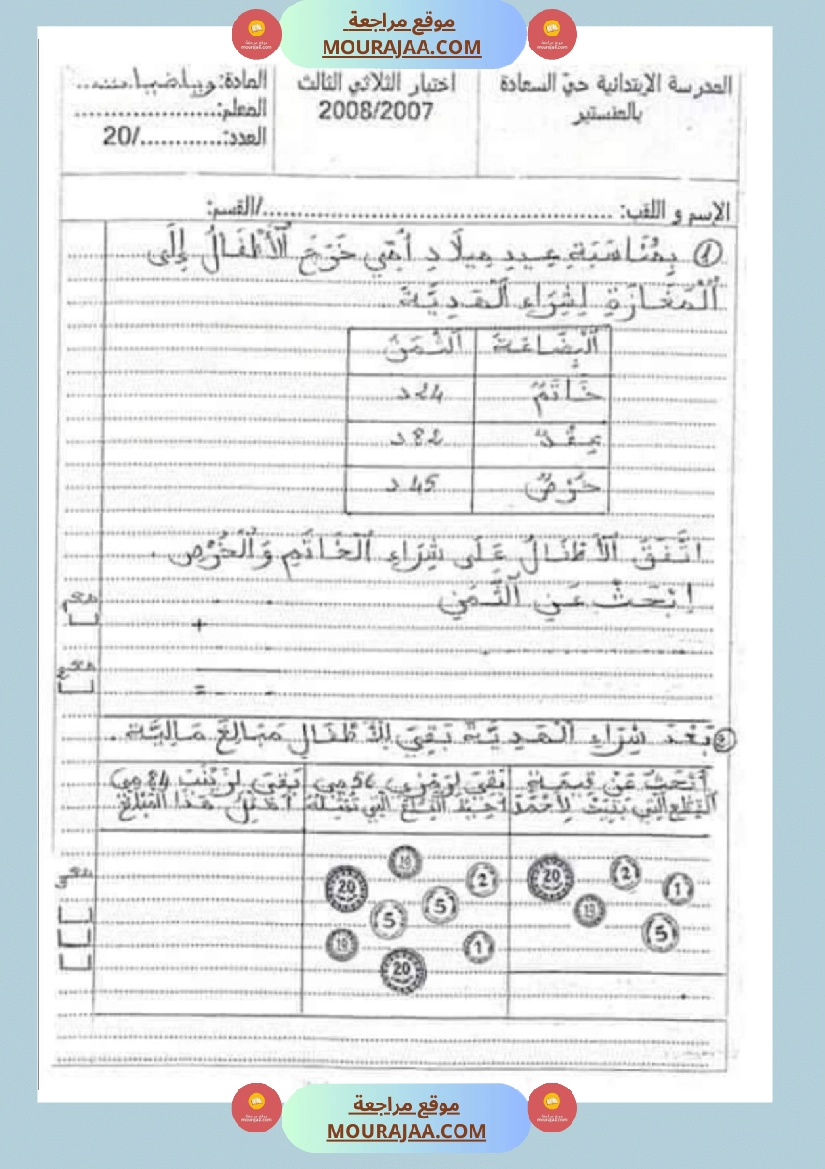 موقع مراجعة
MOURAJAA.COM
المدرسة الإبتدائية حيّ السعادة
بالمنستير
اختبار الثلاثي الثالث
2008/2007
المادة: رياضيات
المعلم:....................
العدد:............/20
الإسم و اللقب: ..................................................../القسم:
1 بِمُنَاسَبَةِ عِيدِ مِيلَادِ أُمِّي خَرَجَ ٱلْأَطْفَالُ إِلَى
ٱلْمَغَازَةِ لِشِرَاءِ ٱلْهَدِيَّةِ
ٱلْبِضَاعَةُ ٱلثَّمَنُ
خَاتَمٌ 24 د
عِقْدٌ 82 د
خُرْصٌ 45 د
اتَّفَقَ ٱلْأَطْفَالُ عَلَى شِرَاءِ ٱلْخَاتَمِ وَٱلْخُرْصِ .
اِبْحَثْ عَنِ ٱلثَّمَنِ
+
=
مع
مع
2 بَعْدَ شِرَاءِ ٱلْهَدِيَّةِ بَقِيَ لِلْأَطْفَالِ مَبَالِغُ مَالِيَّةٌ .
أَبْحَثُ عَنْ قِيمَةِ
ٱلْقِطَعِ الَّتِي بَقِيَتْ لِأَحْمَدَ
20 2 1
10 5
بَقِيَ لِرَمْزِي 56 مي
أُحِيطُ ٱلْقِطَعَ الَّتِي تُمَثِّلُهُ
10
20 2
5 5
10 1
20
بَقِيَ لِزَيْنَبَ 84 مي
أُمَثِّلُ هَذَا ٱلْمَبْلَغَ
مع
موقع مراجعة
MOURAJAA.COM